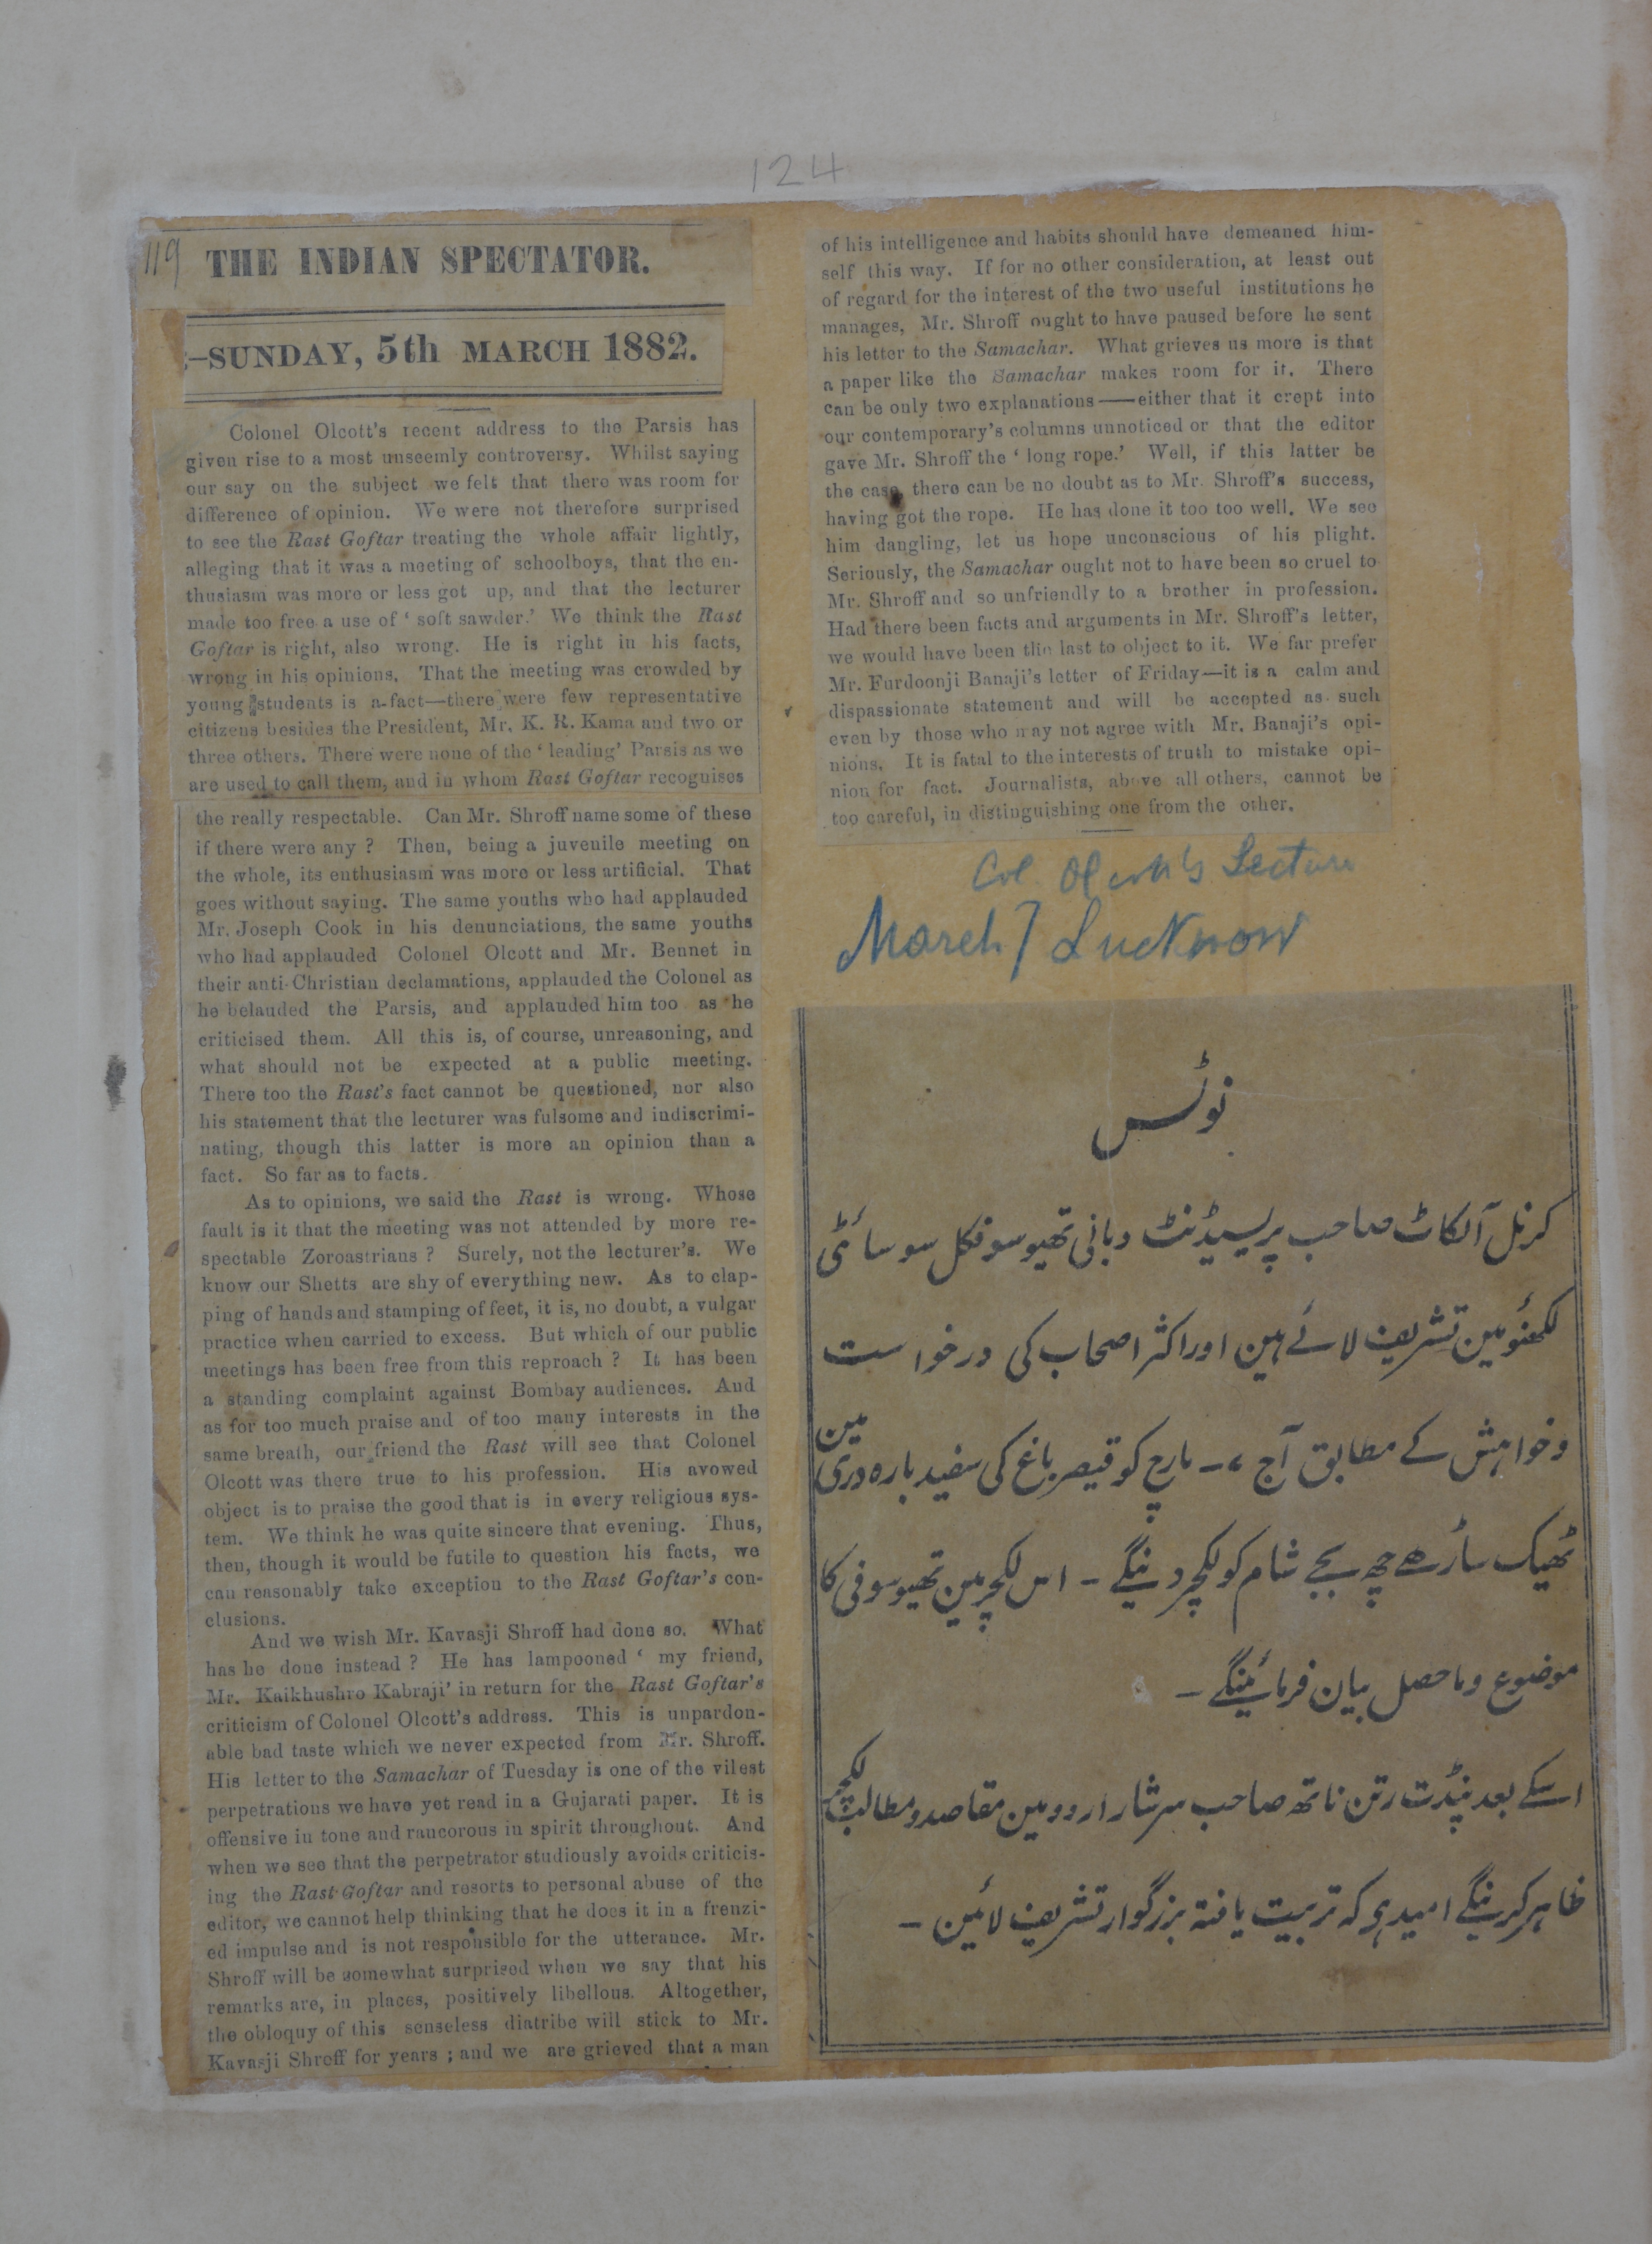 124
119
THE INDIAN SPECTATOR.
:—SUNDAY, 5th MARCH 1882.
Colonel Olcott's recent address to the Parsis has
given rise to a most unseemly controversy. Whilst saying
our say on the subject we felt that there was room for
difference of opinion. We were not therefore surprised
to see the Rast Goftar treating the whole affair lightly,
alleging that it was a meeting of schoolboys, that the en-
thusiasm was more or less got up, and that the lecturer
made too free a use of ' soft sawder.' We think the Rast
Goftar is right, also wrong. He is right in his facts,
wrong in his opinions. That the meeting was crowded by
young students is a fact—there were few representative
citizens besides the President, Mr. K. R. Kama and two or
three others. There were none of the ' leading' Parsis as we
are used to call them, and in whom Rast Goftar recognises
the really respectable. Can Mr. Shroff name some of these
if there were any ? Then, being a juvenile meeting on
the whole, its enthusiasm was more or less artificial. That
goes without saying. The same youths who had applauded
Mr. Joseph Cook in his denunciations, the same youths
who had applauded Colonel Olcott and Mr. Bennet in
their anti-Christian declamations, applauded the Colonel as
he belauded the Parsis, and applauded him too as he
criticised them. All this is, of course, unreasoning, and
what should not be expected at a public meeting.
There too the Rast's fact cannot be questioned, nor also
his statement that the lecturer was fulsome and indiscrimi-
nating, though this latter is more an opinion than a
fact. So far as to facts.
As to opinions, we said the Rast is wrong. Whose
fault is it that the meeting was not attended by more re-
spectable Zoroastrians ? Surely, not the lecturer's. We
know our Shetts are shy of everything new. As to clap-
ping of hands and stamping of feet, it is, no doubt, a vulgar
practice when carried to excess. But which of our public
meetings has been free from this reproach ? It has been
a standing complaint against Bombay audiences. And
as for too much praise and of too many interests in the
same breath, our friend the Rast will see that Colonel
Olcott was there true to his profession. His avowed
object is to praise the good that is in every religious sys-
tem. We think he was quite sincere that evening. Thus,
then, though it would be futile to question his facts, we
can reasonably take exception to the Rast Goftar's con-
clusions.
And we wish Mr. Kavasji Shroff had done so. What
has he done instead ? He has lampooned ' my friend,
Mr. Kaikhushro Kabraji' in return for the Rast Goftar's
criticism of Colonel Olcott's address. This is unpardon-
able bad taste which we never expected from Mr. Shroff.
His letter to the Samachar of Tuesday is one of the vilest
perpetrations we have yet read in a Gujarati paper. It is
offensive in tone and rancorous in spirit throughout. And
when we see that the perpetrator studiously avoids criticis-
ing the Rast Goftar and resorts to personal abuse of the
editor, we cannot help thinking that he does it in a frenzi-
ed impulse and is not responsible for the utterance. Mr.
Shroff will be somewhat surprised when we say that his
remarks are, in places, positively libellous. Altogether,
the obloquy of this senseless diatribe will stick to Mr.
Kavasji Shroff for years ; and we are grieved that a man
of his intelligence and habits should have demeaned him-
self this way. If for no other consideration, at least out
of regard for the interest of the two useful institutions he
manages, Mr. Shroff ought to have paused before he sent
his letter to the Samachar. What grieves us more is that
a paper like the Samachar makes room for it. There
can be only two explanations——either that it crept into
our contemporary's columns unnoticed or that the editor
gave Mr. Shroff the ' long rope.' Well, if this latter be
the case, there can be no doubt as to Mr. Shroff's success,
having got the rope. He has done it too too well. We see
him dangling, let us hope unconscious of his plight.
Seriously, the Samachar ought not to have been so cruel to
Mr. Shroff and so unfriendly to a brother in profession.
Had there been facts and arguments in Mr. Shroff's letter,
we would have been the last to object to it. We far prefer
Mr. Furdoonji Banaji's letter of Friday—it is a calm and
dispassionate statement and will be accepted as such
even by those who may not agree with Mr. Banaji's opi-
nions. It is fatal to the interests of truth to mistake opi-
nion for fact. Journalists, above all others, cannot be
too careful, in distinguishing one from the other.
Col. Olcott's Lecture
March 7 Lucknow
نوٹس
کرنل آلکاٹ صاحب پریسیڈنٹ و بانی تھیوسوفکل سوسائٹی
لکھنؤ مین تشریف لائے ہین اور اکثر اصحاب کی درخواست
و خواہش کے مطابق آج ۷- مارچ کو قیصر باغ کی سفید بارہ دری مین
ٹھیک ساڑھے چھ بجے شام کو لکچر دینگے - اس لکچر مین تھیوسوفی کا
موضوع و ماحصل بیان فرمائینگے -
اسکے بعد پنڈت رتن ناتھ صاحب سرشار اردو مین مقاصد و مطالب لکچر
ظاہر کرینگے امید ہی کہ تربیت یافتہ بزرگوار تشریف لائین -